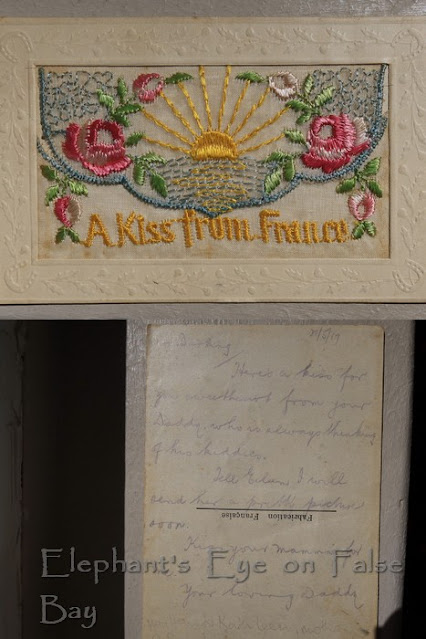 A Kiss from France
21/5/17
Darling
Here's a kiss for
you sweetheart from your
Daddy, who is always thinking
of his kiddies.
Tell Eileen I will
send her a pretty picture
soon.
Fabrication Française
Kiss your mammie for
Your loving Daddy
Elephant's Eye on False
Bay